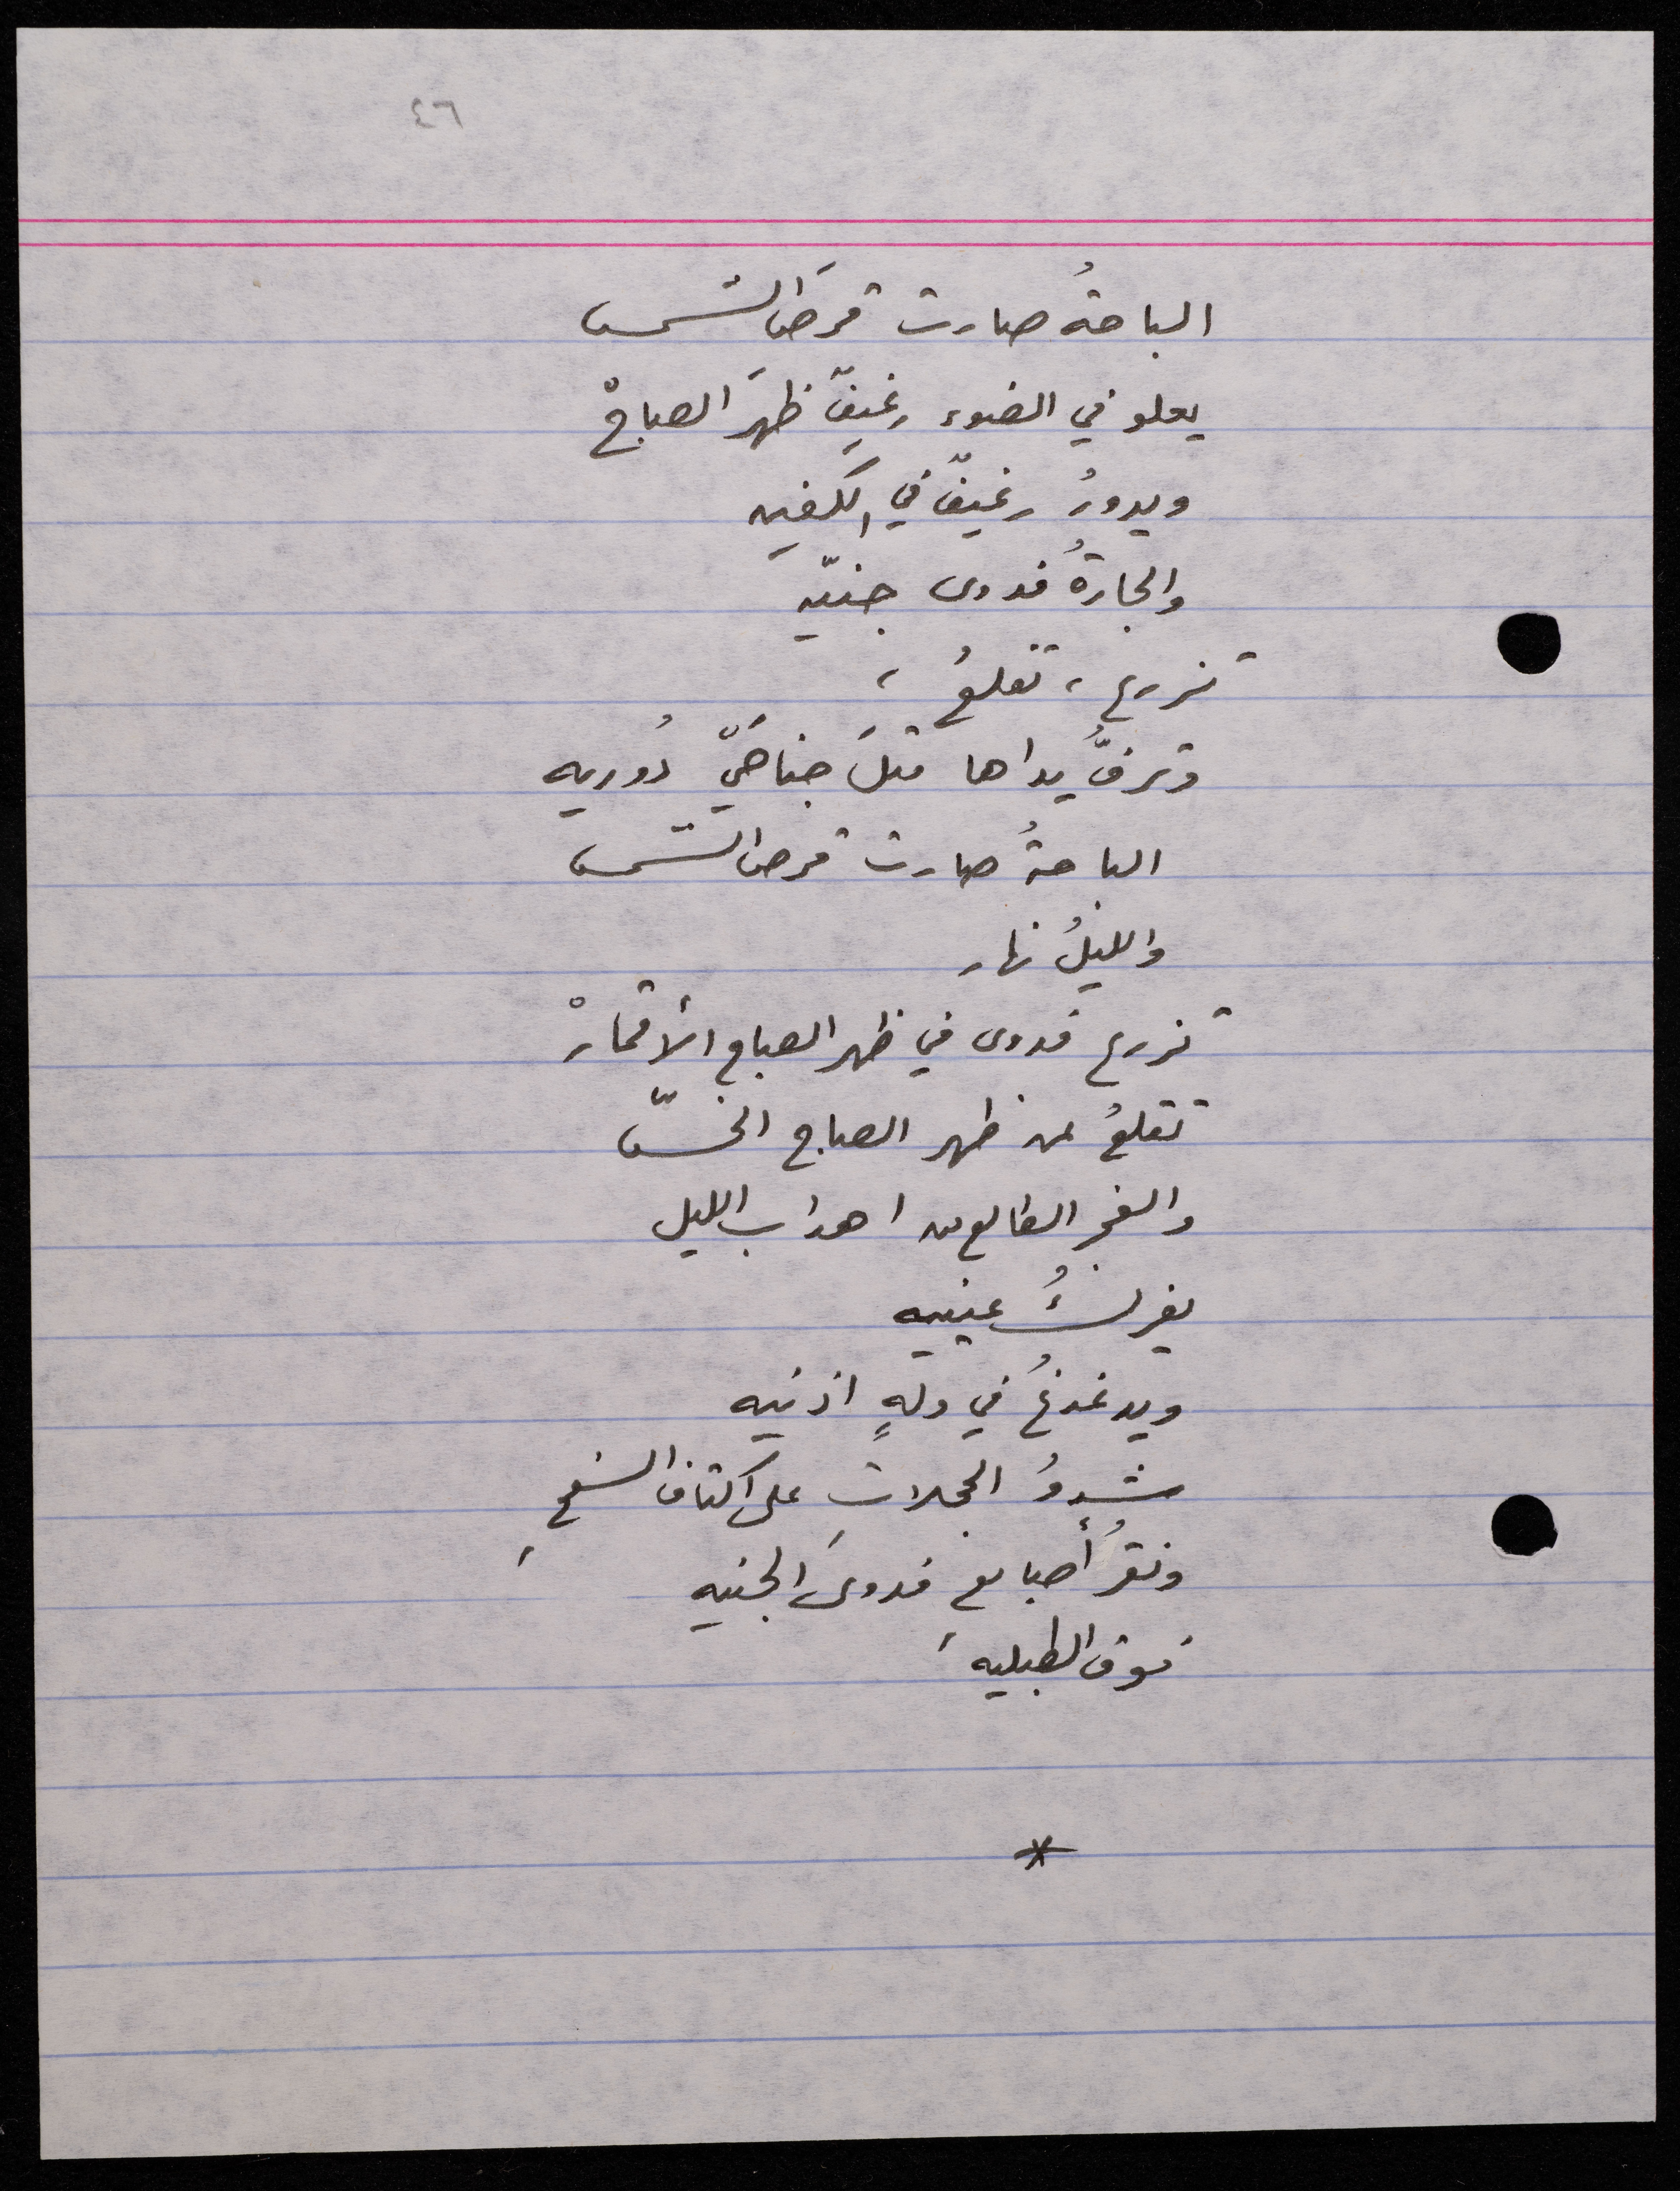 ٤٦
الباحةُ صارت قرصَ الشمس
يعلو في الضوء رغيفٌ ظهرَ الصباحْ
ويدورُ رغيفٌ في الكفينِ
والجارةُ فدوى جنيّه
تزرع ، تقلعُ ،
وترفُّ يداها مثلَ جناحَيّ دُوريه
الباحةُ صارت قرص الشمس
والليلُ نهار
تزرع فدوى في ظهر الصباح الأقمارْ
تقلعُ من ظهر الصباح الخسّ
والفجر الطالع من اهداب الليل
يفركُ عينيه
ويدغدغُ في ولهٍ اذنيه
شدوُ الحجلاتِ على اكتاف السفحِ
ونقرُ أصابع فدوىَ الجنيه
فوق الطبليه
*